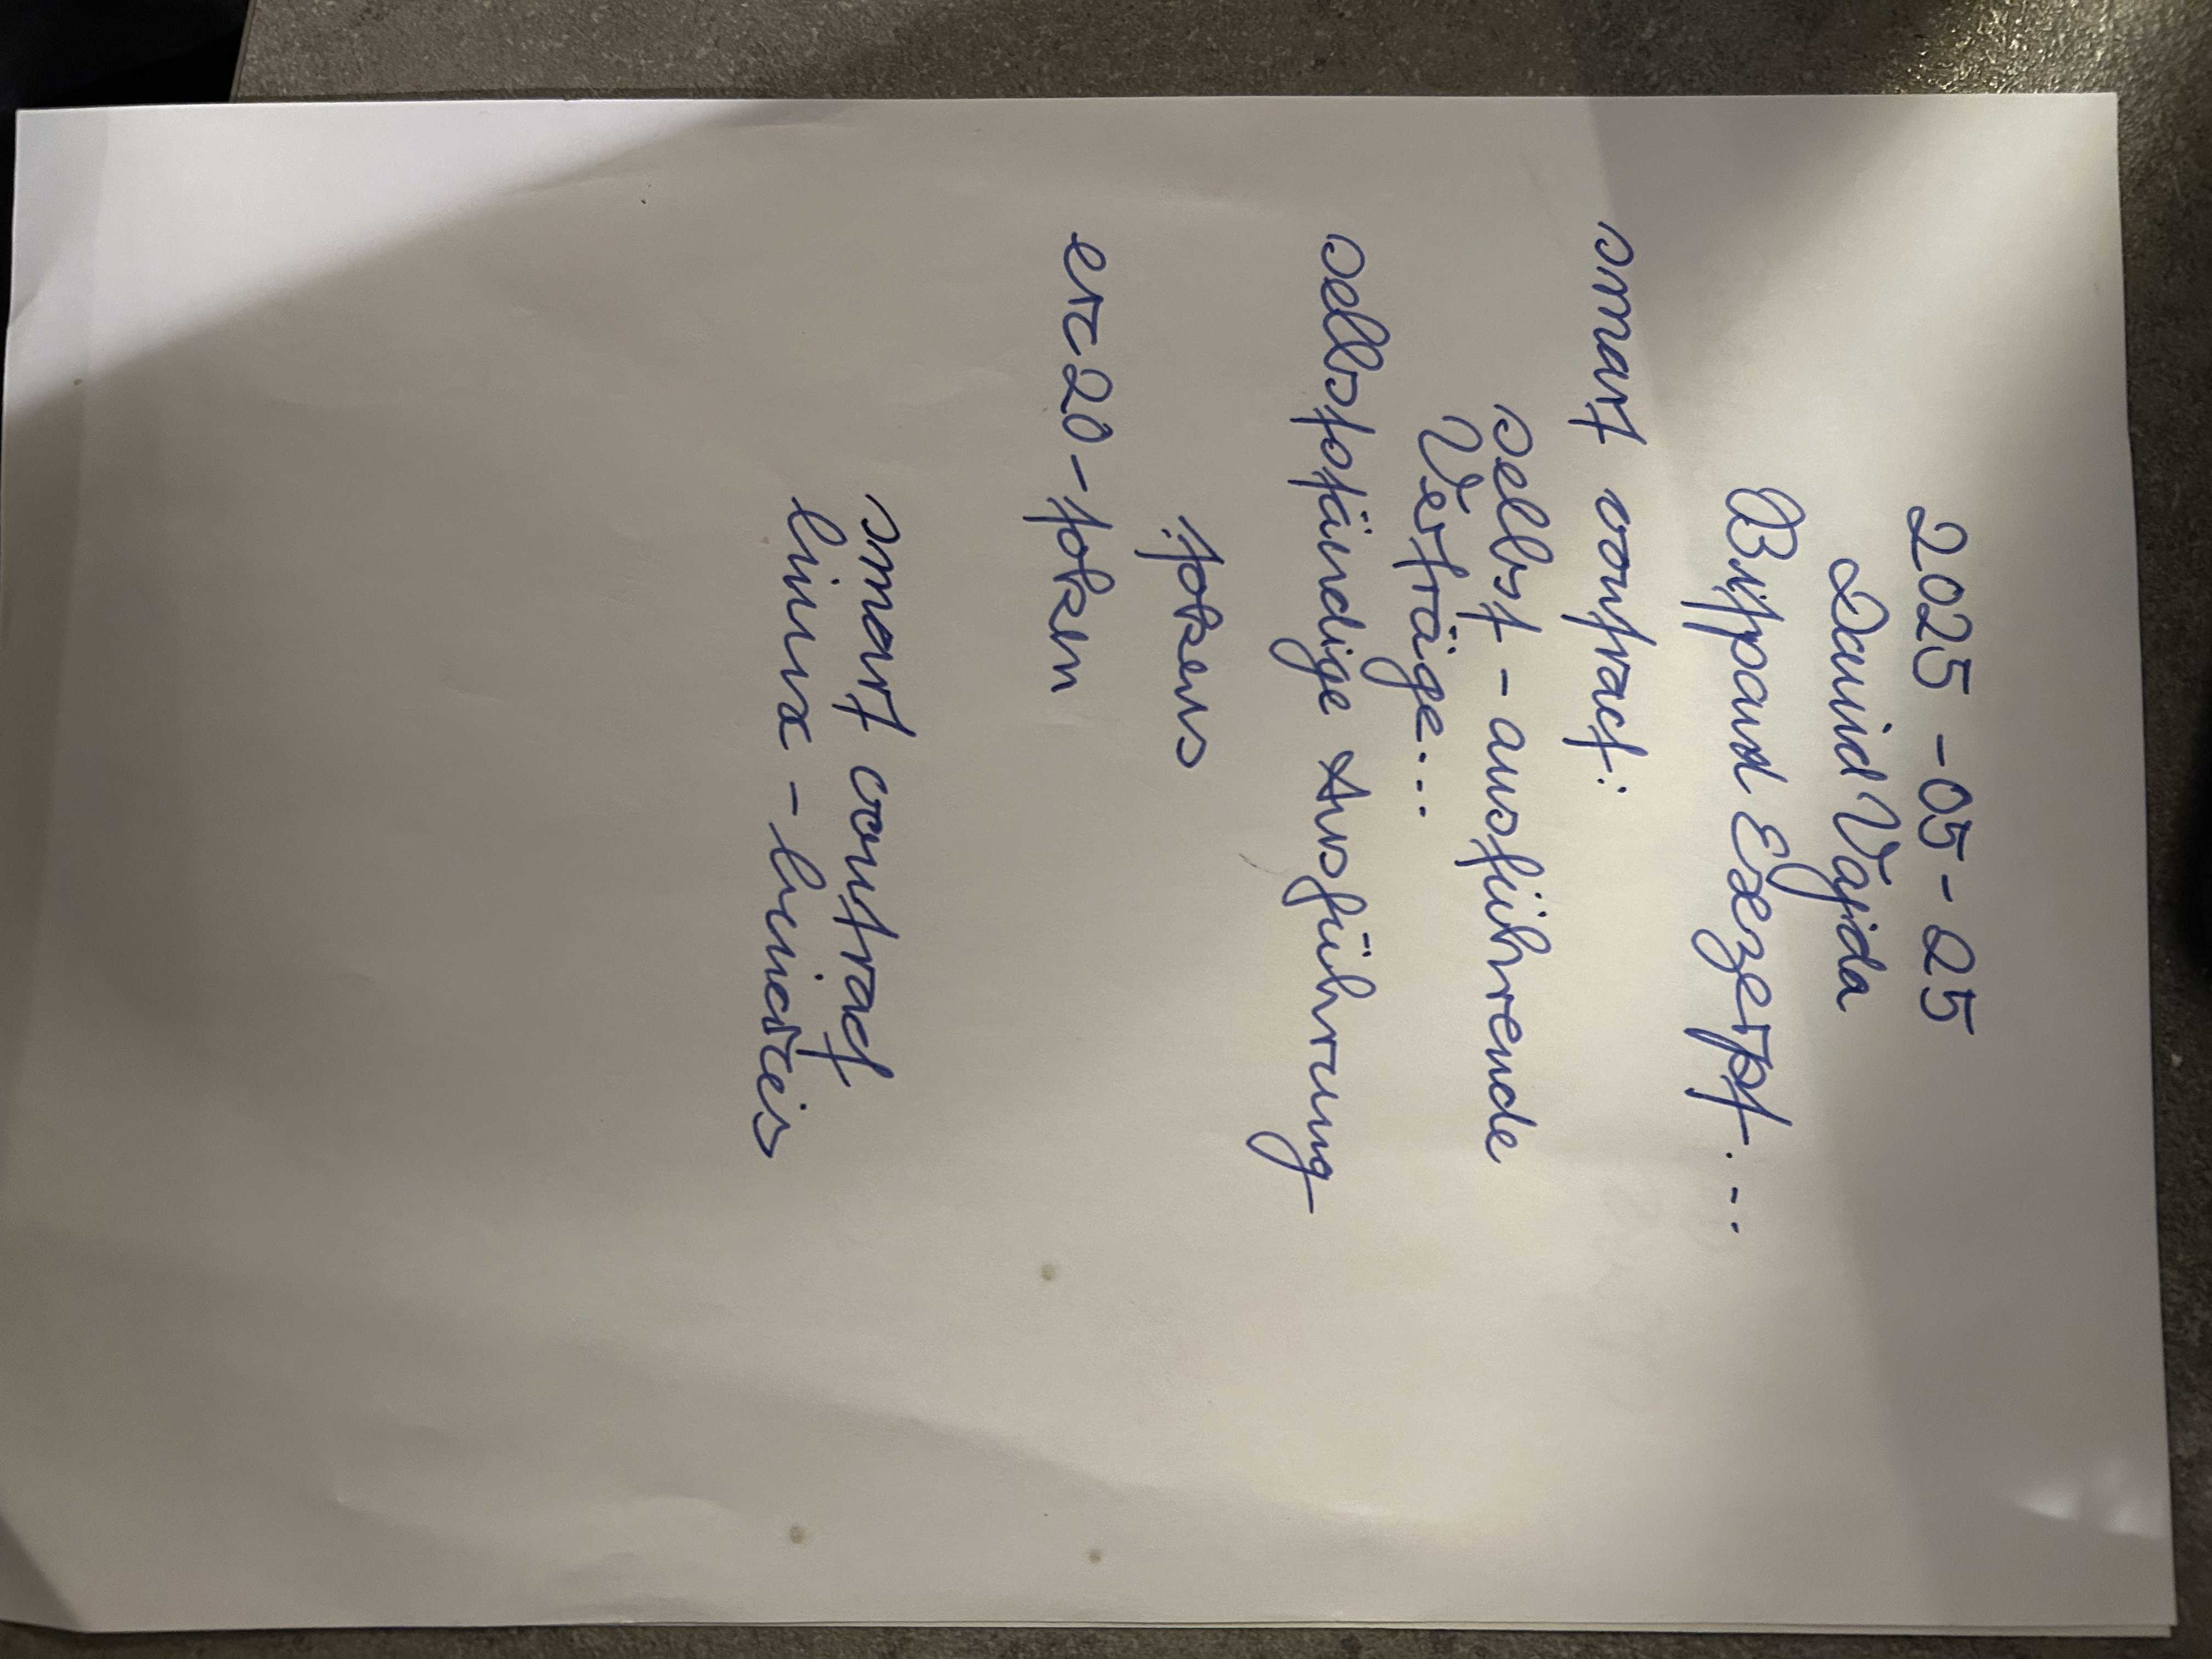 2025-05-25
David Vajda
Bitpand Exzerpt...
smart contract:
selbst-ausführende
Verträge...
selbstständige Ausführung
: tokens
erc20-token
smart contract
linux-